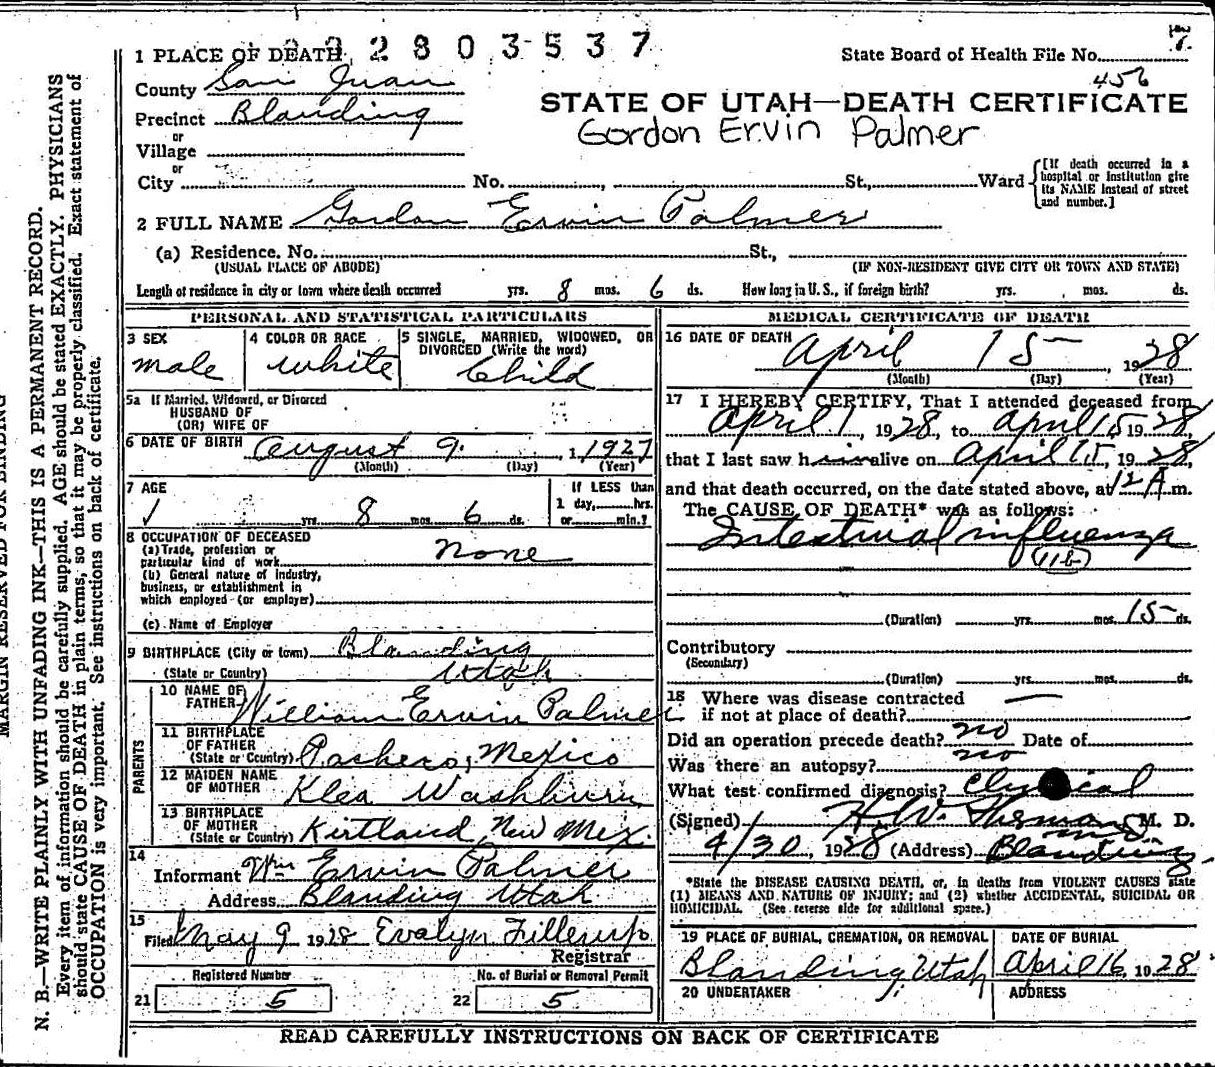 7
1 PLACE OF DEATH 2 8 0 3 5 3 7
State Board of Health File No.
456
County San Juan
STATE OF UTAH—DEATH CERTIFICATE
Precinct Blanding
Gordon Ervin Palmer
or
Village
or
City No. , St., Ward
[If death occurred in a
hospital or institution give
its NAME instead of street
and number.]
2 FULL NAME Gordon Ervin Palmer
(a) Residence. No. St.,
(USUAL PLACE OF ABODE) (IF NON-RESIDENT GIVE CITY OR TOWN AND STATE)
Length of residence in city or town where death occurred yrs. 8 mos. 6 ds. How long in U. S., if foreign birth? yrs. mos. ds.
PERSONAL AND STATISTICAL PARTICULARS
3 SEX
male
4 COLOR OR RACE
white
5 SINGLE, MARRIED, WIDOWED, OR
DIVORCED (Write the word)
Child
5a If Married, Widowed, or Divorced
HUSBAND OF
(OR) WIFE OF
6 DATE OF BIRTH August 9, 1927
(Month) (Day) (Year)
7 AGE
yrs. 8 mos. 6 ds.
If LESS than
1 day, hrs.
or min.?
8 OCCUPATION OF DECEASED
(a) Trade, profession or
particular kind of work none
(b) General nature of industry,
business, or establishment in
which employed (or employer)
(c) Name of Employer
9 BIRTHPLACE (City or town) Blanding
(State or Country) Utah
PARENTS
10 NAME OF
FATHER William Ervin Palmer
11 BIRTHPLACE
OF FATHER
(State or Country) Pacheco, Mexico
12 MAIDEN NAME
OF MOTHER Klea Washburn
13 BIRTHPLACE
OF MOTHER
(State or Country) Kirtland, New Mex.
14
Informant Wm Ervin Palmer
Address Blanding Utah
15
Filed May 9 1928 Evalyn Fillerup
Registrar
Registered Number No. of Burial or Removal Permit
21 5 22 5
MEDICAL CERTIFICATE OF DEATH
16 DATE OF DEATH April 15, 1928
(Month) (Day) (Year)
17 I HEREBY CERTIFY, That I attended deceased from
April 1, 1928, to April 15 1928,
that I last saw him alive on April 15, 1928,
and that death occurred, on the date stated above, at 12 A. m.
The CAUSE OF DEATH* was as follows:
Intestinal influenza
(11b)
(Duration) yrs. mos. 15 ds.
Contributory
(Secondary)
(Duration) yrs. mos. ds.
18 Where was disease contracted
if not at place of death? —
Did an operation precede death? no Date of
Was there an autopsy? no
What test confirmed diagnosis? Clinical
(Signed) H. W. M. D.
4/30, 1928 (Address) Blanding
*State the DISEASE CAUSING DEATH, or, in deaths from VIOLENT CAUSES state
(1) MEANS AND NATURE OF INJURY; and (2) whether ACCIDENTAL, SUICIDAL OR
HOMICIDAL. (See reverse side for additional space.)
19 PLACE OF BURIAL, CREMATION, OR REMOVAL
Blanding, Utah
DATE OF BURIAL
April 16, 1928
20 UNDERTAKER ADDRESS
READ CAREFULLY INSTRUCTIONS ON BACK OF CERTIFICATE
MARGIN RESERVED FOR BINDING
N. B.—WRITE PLAINLY WITH UNFADING INK—THIS IS A PERMANENT RECORD.
Every item of information should be carefully supplied. AGE should be stated EXACTLY. PHYSICIANS
should state CAUSE OF DEATH in plain terms, so that it may be properly classified. Exact statement of
OCCUPATION is very important. See instructions on back of certificate.